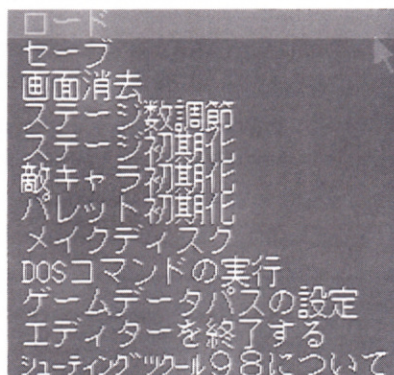 ロード
セーブ
画面消去
ステージ数調節
ステージ初期化
敵キャラ初期化
パレット初期化
メイクディスク
DOSコマンドの実行
ゲームデータパスの設定
エディターを終了する
ｼｭｰﾃｨﾝｸﾞﾂｸｰﾙ９８について